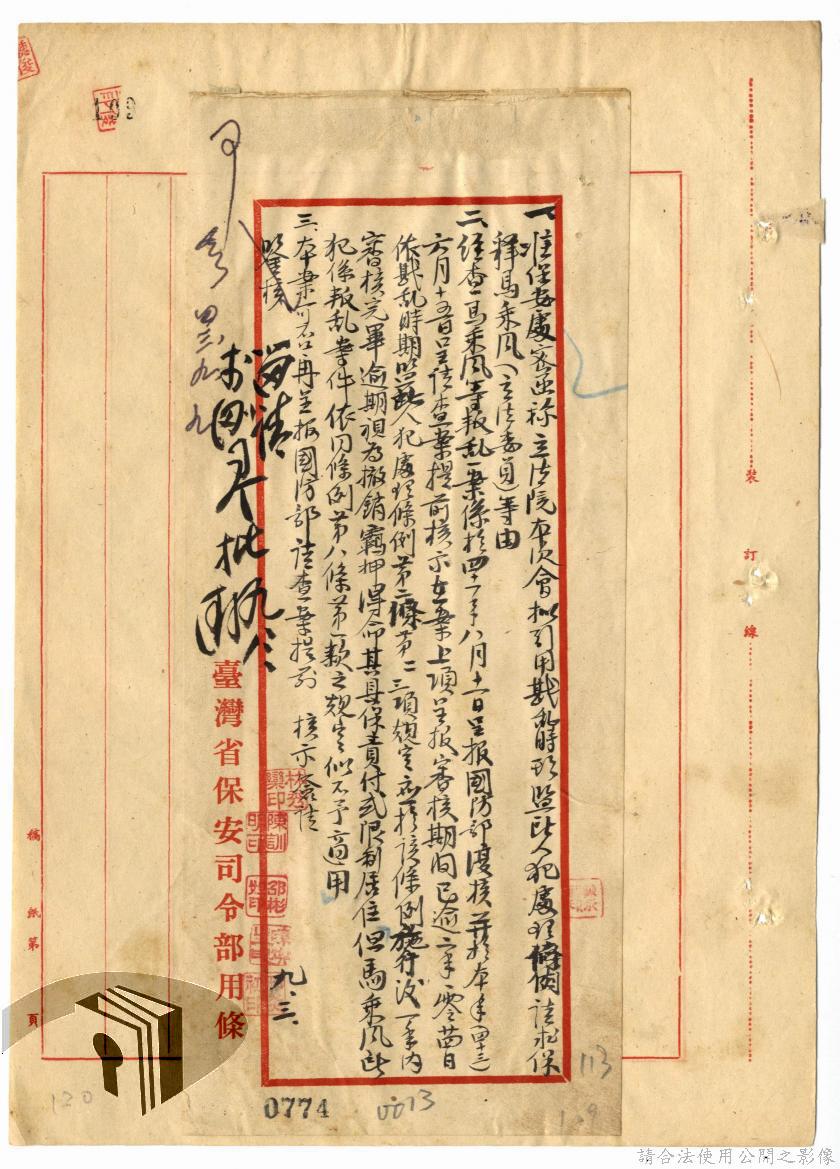 一、准保安處密函称立法院本次會拟引用戡乱時期監所人犯處理條例請求保
釋馬乘風(立法委員)等由
二、經查馬乘風等叛乱一案係於四十一年八月十一日呈报國防部復核并於本年(四十三)
六月十五日呈請查案提前核示在案上項呈报審核期间已逾二年零廿四日
依戡乱時期監所人犯處理條例第二條第二三項規定應於該條例施行後一年内
審核完畢逾期視為撤銷羈押得命其具保責付或限制居住但馬乘風所
犯係叛乱案件依同條例第八條第一款之規定似不予適用
三、本案可否再呈报國防部請查案提前 核示簽請
鑒核
九.三.
可
批
九
臺灣省保安司令部用條
109
0774
0013
113
109
120
裝 訂 線
稿 紙 第 頁
請合法使用公開之影像